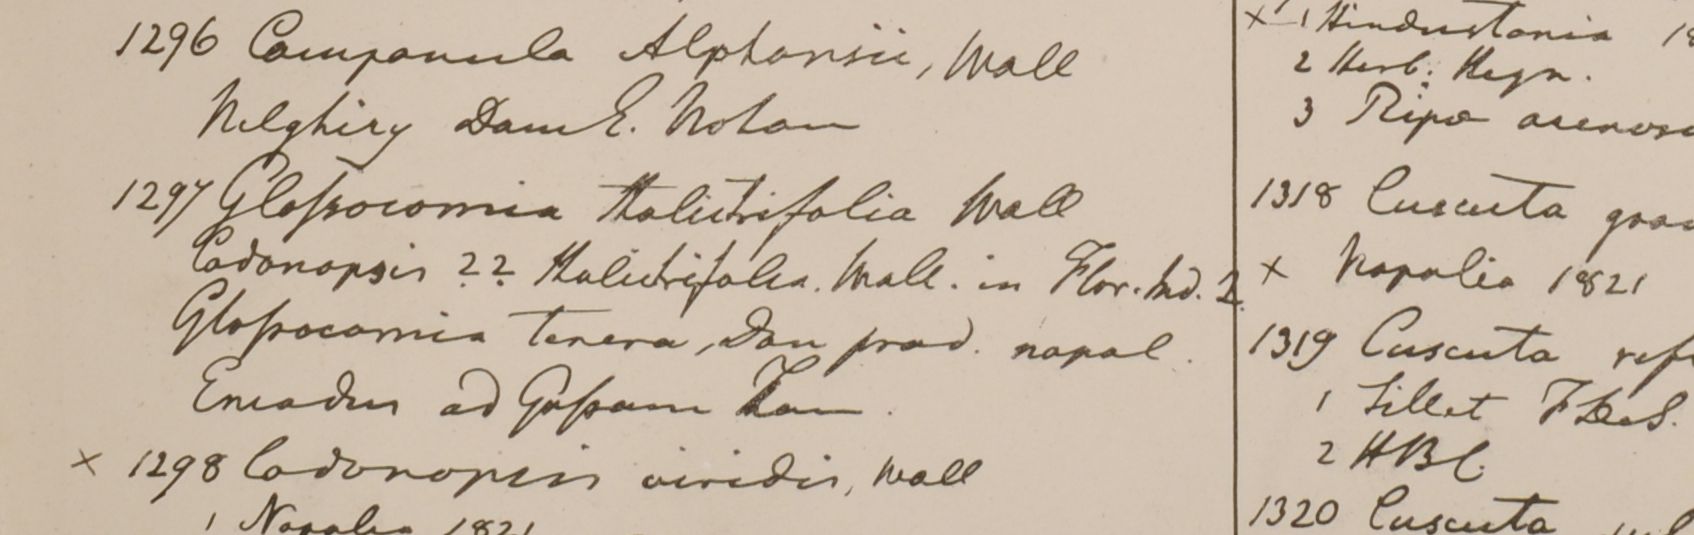 1296 Campanula Alphonsii, Wall
Nilghiry Dam E. Notan
1297 Glossocomia thalictrifolia Wall
Codonopsis ?? thalictrifolia. Wall. in Flor. Ind. 2
Glossocomia tenera, Don prod. napal.
Emodus ad Gossam Than.
× 1298 Codonopsis viridis, Wall
1 Napalia 1821
× 1 Hindustania 18
2 Herb. Heyn.
3 Ripa arenosa
1318 Cuscuta
× Napalia 1821
1319 Cuscuta refl
1 Sillet F DeS.
2 HBC
1320 Cuscuta